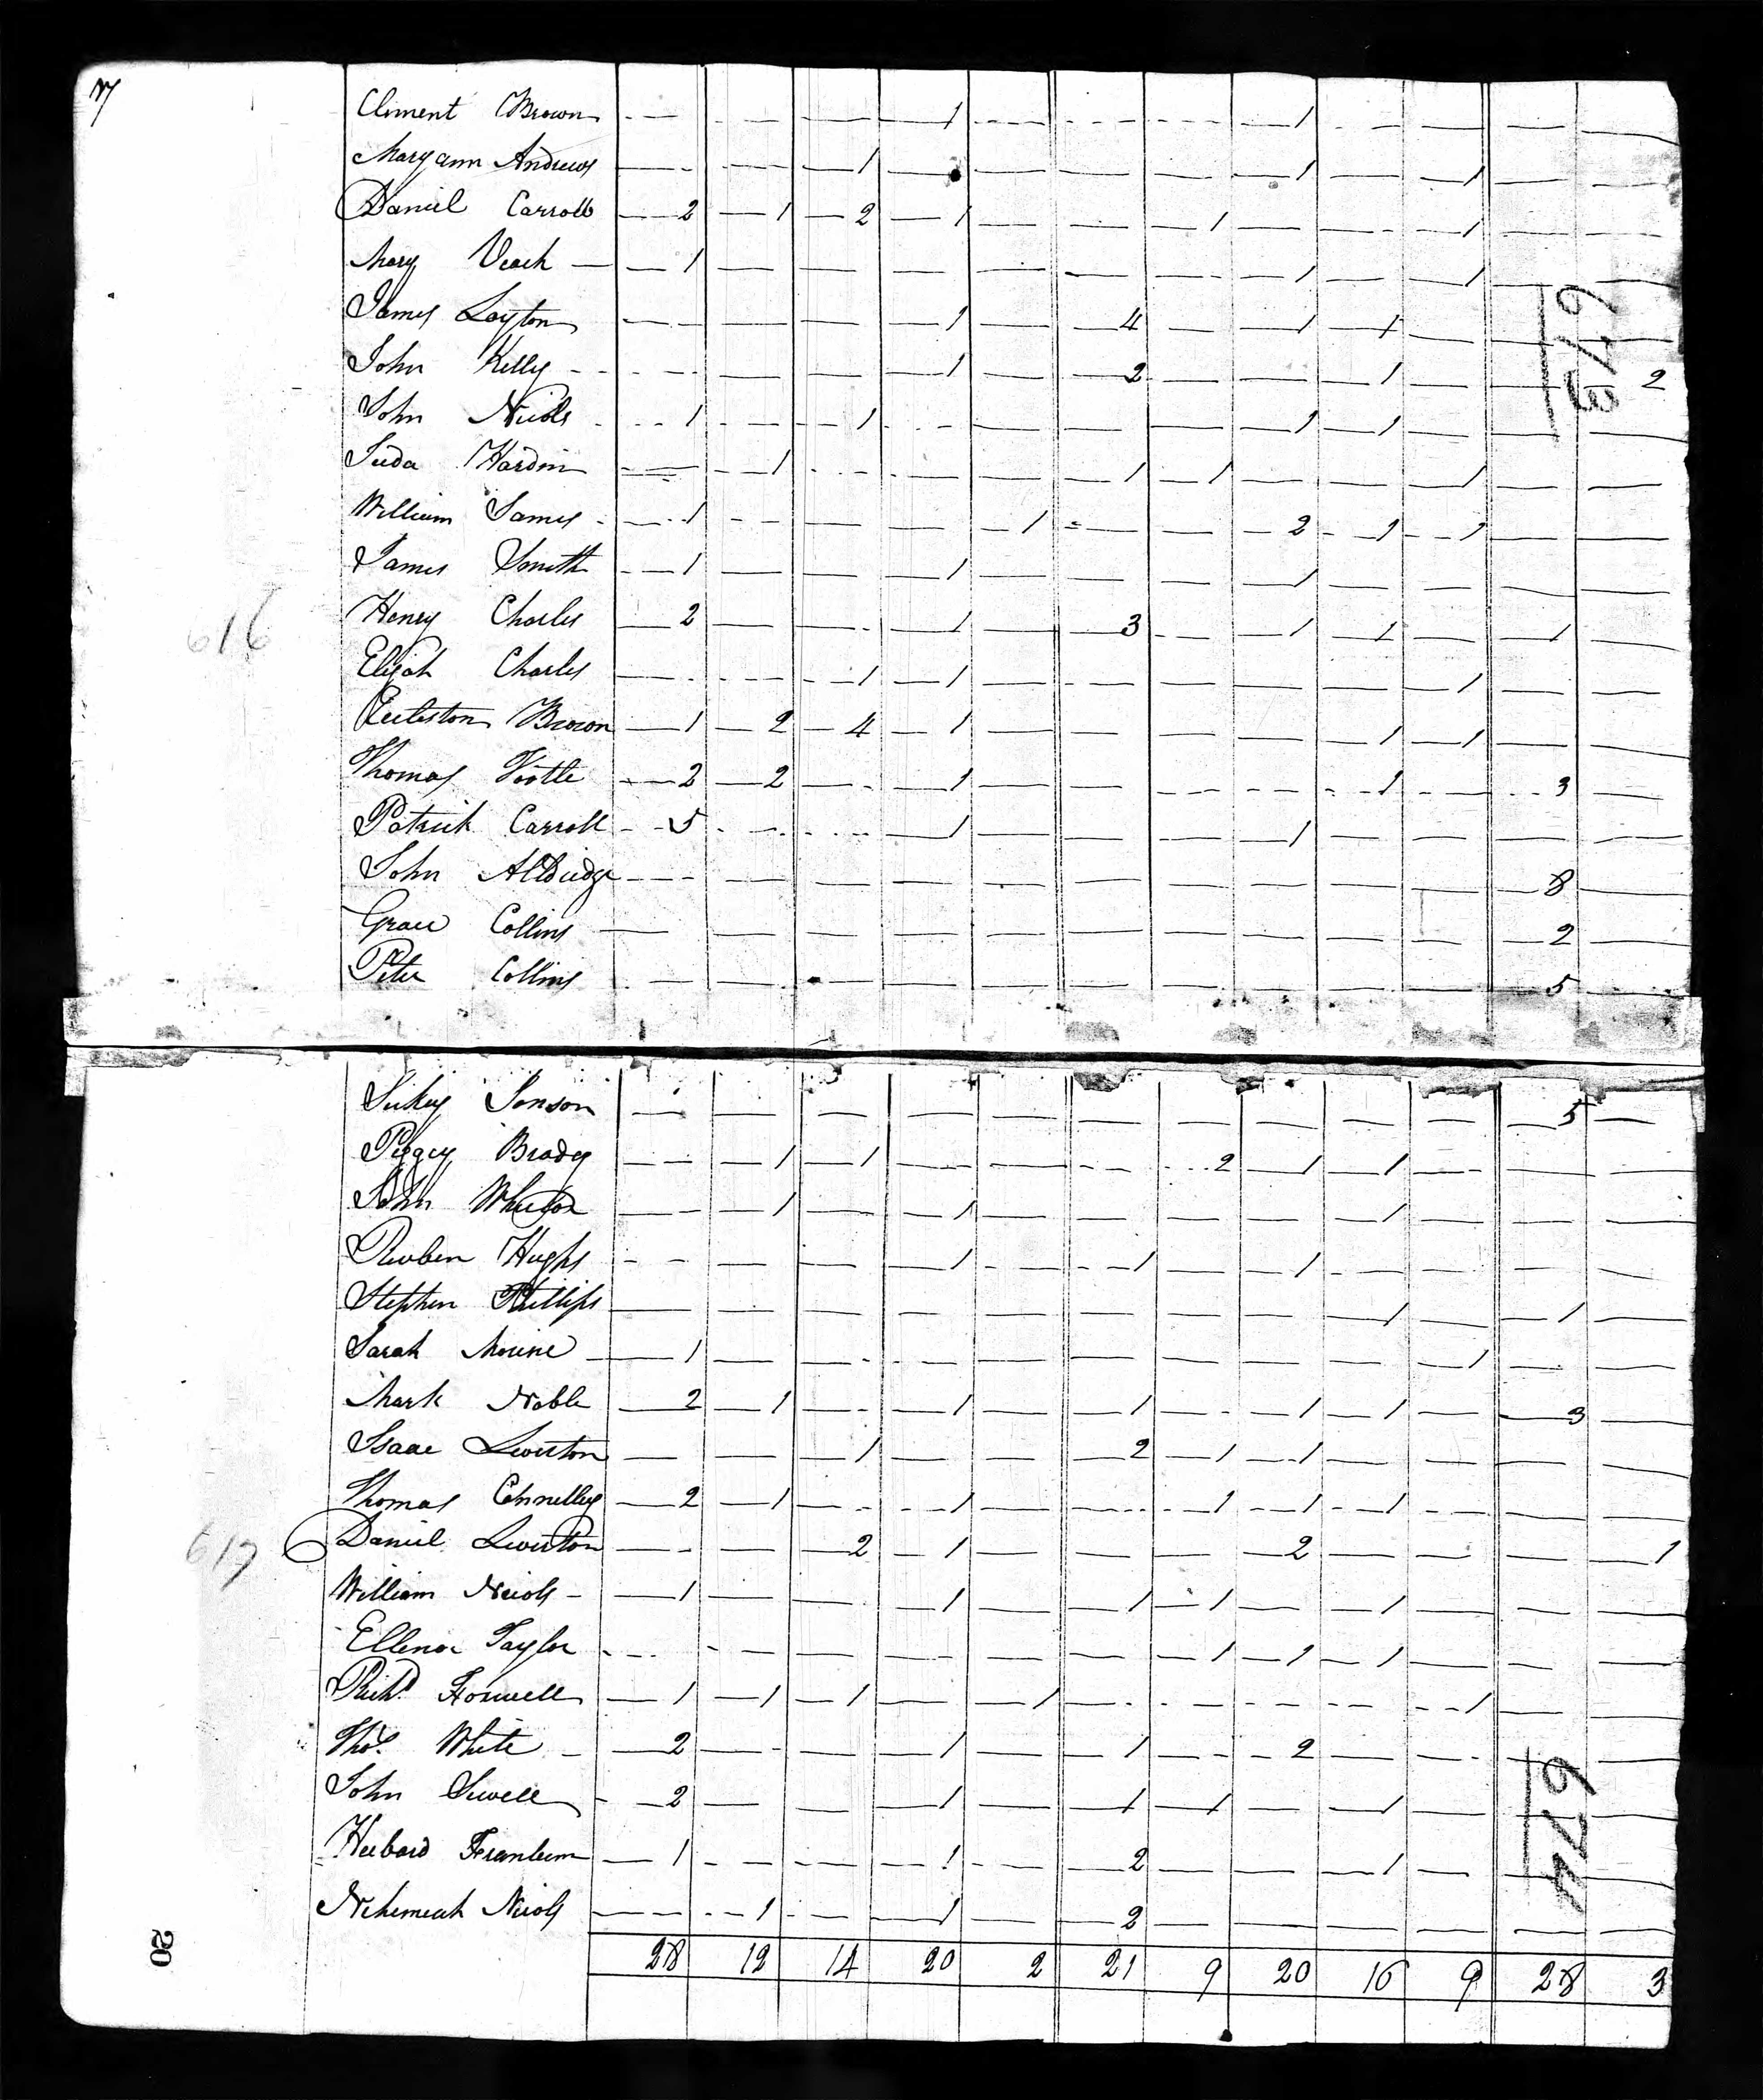 Climent Brown 1 1
Mary ann Andrews 1 1 1
Daniel Carroll 2 1 2 1 1 1
Mary Veach 1 1 1
James Layton 1 4 1 1
John Kelly 1 2 1 2
John Nicols 1 1 1 1
Juda Hardin 1 1 1 1
William James 1 1 2 1 1
James Smith 1 1 1
Henry Charles 2 1 3 1 1 1
Elijah Charles 1 1 1
Eccleston Brown 1 2 4 1 1 1
Thomas Tootle 2 2 1 1 3
Patrick Carroll 5 1 1
John 8
Grace Collins 2
Peter Collins 5
679
616
Sukey Jonson 5
Peggy Brady 1 1 2 1 1
John 1 1 1
Reuben Hughs 1 1 1
Stephen Phillips 1 1
Sarah 1 1
Mark Noble 2 1 1 1 1 1 3
Isaac Liverton 1 2 1 1
Thomas Connelley 2 1 1 1 1 1
Daniel Liverton 2 1 2 1
William Nicols 1 1 1 1 1
Ellenor Taylor 1 1 1
Richd. 1 1 1 1 1
Thos. White 2 1 1 2
John Sewell 2 1 1 1 1
1 1 2 1
Nehemiah Nicols 1 1 2
28 12 14 20 2 21 9 20 16 9 28 3
20